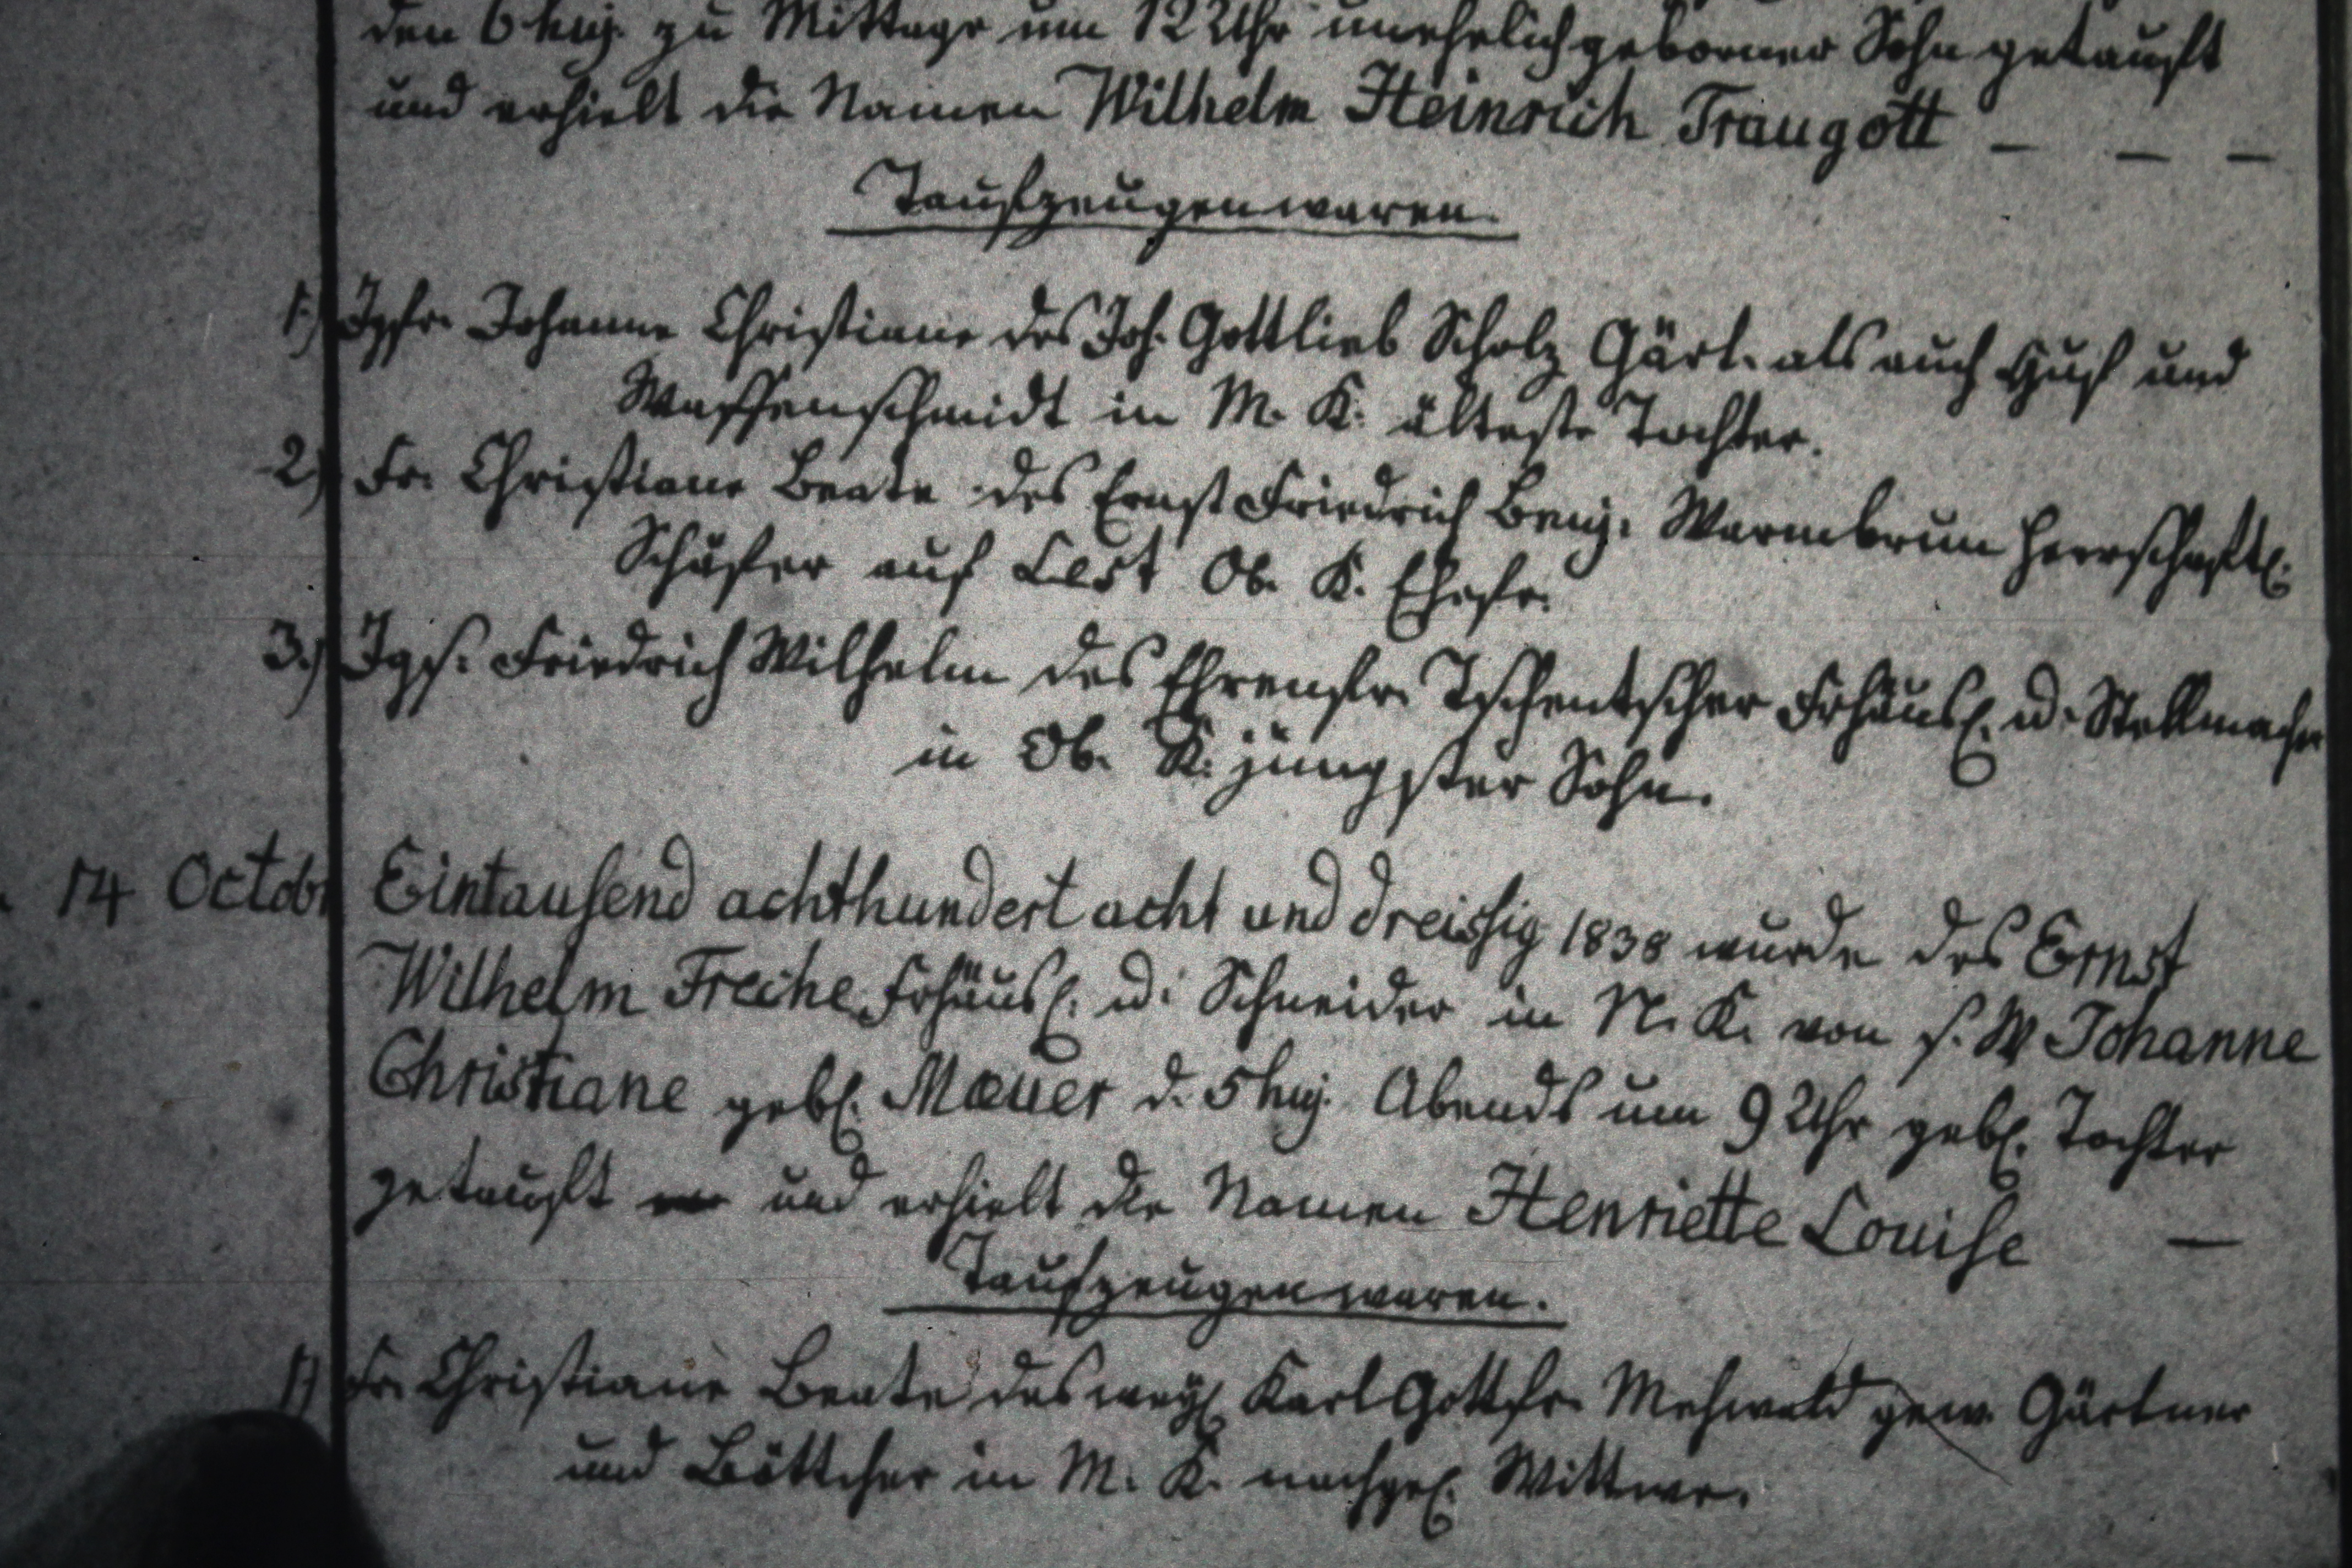 den 6 huj. zu Mittage um 12 Uhr unehelich geborner Sohn getauft
und erhielt die Namen Wilhelm Heinrich Traugott — — —
Taufzeugen waren.
1.) Jgfr. Johanne Christiane des Joh. Gottlieb Scholz Gärt. als auch Huf und
Waffenschmidt in M. K. älteste Tochter.
2) Fr. Christiane Beate des Ernst Friedrich Benj. Warmbrun herrschaftl.
Schäfer auf Ob. K. Ehefr.
3.) Jgs. Friedrich Wilhelm des Ehrenfr. Tschentscher Frhäusl. u. Stellmacher
in Ob. K. jüngster Sohn.
14 Octobr Eintausend achthundert acht und dreissig 1838 wurde des Ernst
Wilhelm Freche Frhäusl. u. Schneider in N. K. von s. W Johanne
Christiane gebl. Mauer d. 5 huj. Abends um 9 Uhr gebl. Tochter
getauft und erhielt die Namen Henriette Louise —
Taufzeugen waren.
1) Fr. Christiane Beate des weyl Karl Gottfr. Mehwald gew. Gärtner
und Böttcher in M. K. nachgel. Wittwe.